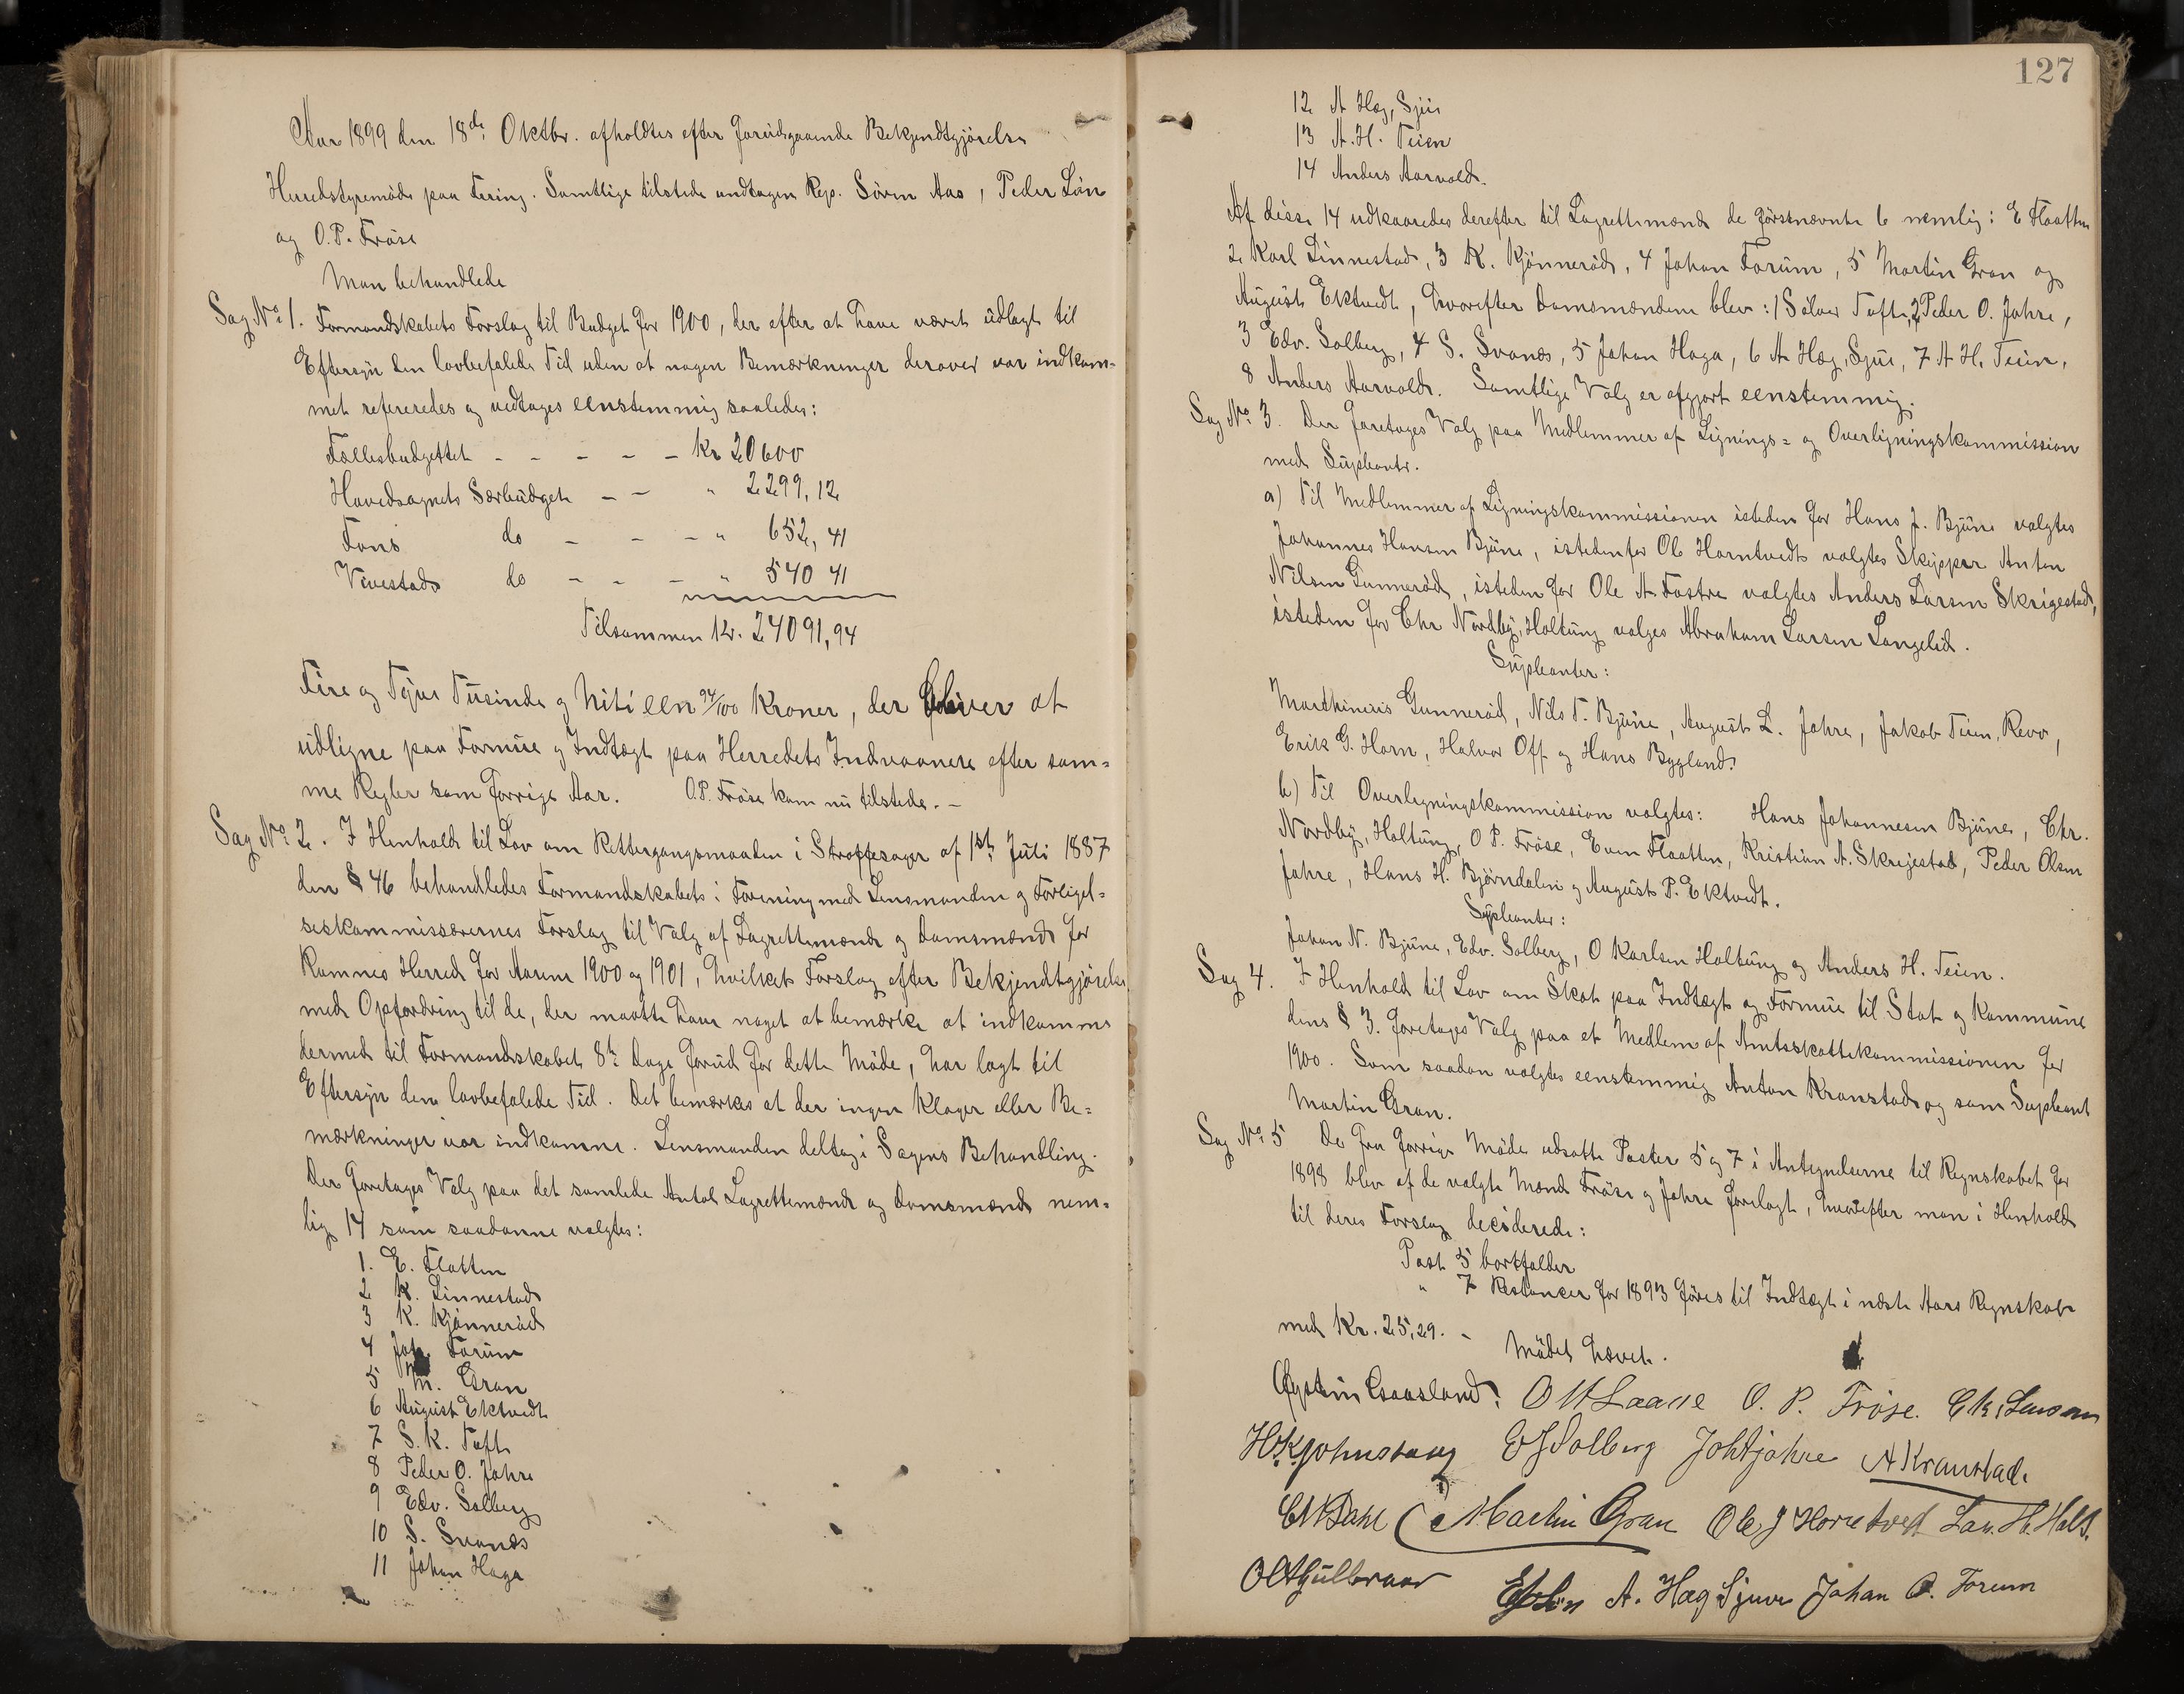 Aar 1899 den 18de Oktbr. afholdtes efter forudgaaende Bekjendtgjörelse
Herredstyremöde paa Fering. Samtlige tilstede undtagen Rep. Sören Aas, Peder Lön
og O.P. Fröse
Man behandlede
Sag No 1. Formandskabets Forslag til Budget for 1900, der efter at have været udlagt til
Eftersyn den lovbefalede Tid uden at nogen Bemærkninger derover var indkom-
met refereredes og vedtoges eenstemmig saaledes:
Fællesbudgettet - - - - - Kr 20600
Hovedsognets Særbudget - - " 2299,12
Fons do - - - " 652,41
Vivestad do - - - " 540 41
Tilsammen Kr. 24091,94
Fire og Tyve Tusinde og Nitieen 94/100 Kroner, der bliver at
udligne paa Formue og Indtægt paa Herredets Indvaanere efter sam-
me Regler som forrige Aar. O.P. Fröse kom nu tilstede. -
Sag No 2. I Henhold til Lov om Rettergangsmaaden i Straffesager af 1ste Juli 1887
den § 46 behandledes Formandskabets i Forening med Lensmanden og Forligel-
seskommissærernes Forslag til Valg af Lagrettemænd og Domsmænd for
Ramnes Herred for Aarene 1900 og 1901, hvilket Forslag efter Bekjendtgjörelse
med Opfordring til de, der maatte have noget at bemærke at indkomme
dermed til Formandskabet 8te Dage forud for dette Möde, har lagt til
Eftersyn den lovbefalede Tid. Det bemærkes at der ingen Klager eller Be-
mærkninger var indkomne. Lensmanden deltog i Sagens Behandling.
Der foretoges Valg paa det samlede Antal Lagrettemænd og Domsmænd nem-
lig 14 som saadanne valgtes:
1. E. Flatten
2 K. Linnestad
3 K. Kjönneröd
4 Joh. Forum
5 M. Gran
6 August Ektvedt
7 S. K. Tuft
8 Peder O. Jahre
9 Edv. Solberg
10 S. Svanæs
11 Johan Haga
127
12 A Hæg, Sjue
13 A. H. Teien
14 Anders Aarvold.
Af disse 14 udkaaredes derefter til Lagrettemænd de förstnævnte 6 nemlig: E Flaatten
2 Karl Linnestad, 3 K. Kjönneröd, 4 Johan Forum, 5 Martin Gran og
August Ektvedt, hvorefter Domsmændene blev: 1 Sölver Tuft, 2 Peder O. Jahre,
3 Edv. Solberg, 4 S. Svanæs, 5 Johan Haga, 6 A Hæg, Sjue, 7 A H. Teien,
8 Anders Aarvold. Samtlige Valg er afgjort eenstemmig.
Sag No 3. Der foretoges Valg paa Medlemmer af Lignings- og Overligningskommission
med Supleanter.
a) Til Medlemmer af Ligningskommissionen isteden for Hans J. Bjune valgtes
Johannes Hansen Bjune, istedenfor Ole Horntvedt valgtes Skipper Anton
Nilsen Gunneröd, isteden for Ole A. Fostre valgtes Anders Larsen Skrigestad,
isteden for Chr Nordby, Holtung valges Abraham Larsen Langelid.
Supleanter:
Marthinius Gunneröd, Nils T. Bjune, August L. Jahre, Jakob Teien, Revo,
Erik G. Horn, Halvor Off og Hans Bygland.
b) Til Overligningskommission valgtes: Hans Johannesen Bjune, Chr.
Nordby, Holtung, O P. Fröse, Even Flaatten, Kristian A. Skrejestad, Peder Olsen
Jahre, Hans H. Björndalen og August P. Ektvedt.
Supleanter:
Johan N. Bjune, Edv. Solberg, O Karlsen Holtung og Anders H. Teien.
Sag 4. I Henhold til Lov om Skat paa Indtægt og Formue til Stat og Kommune
dens § 3. foretoges Valg paa et Medlem af Amtsskattekommissionen for
1900. Som saadan valgtes eenstemmig Anton Kranstad og som Supleant
Martin Gran.
Sag No 5 De fra forrige Möde udsatte Poster 5 og 7 i Antegnelserne til Regnskabet for
1898 blev af de valgte Mænd Fröse og Jahre forelagt, hvorefter man i Henhold
til deres Forslag deciderede:
Post 5 bortfalder
" 7 Restancer for 1893 föres til Indtægt i næste Aars Regnskab
med Kr. 25,29. -
Mödet hævet.
Øystein Graasland. O H Laane O. P. Fröse. Chr. Larsen
H.K. Johnstang E J Solberg Joh A Jahre A Kranstad.
C N Dahl Martin Gran Ole J Horntvedt Lar. H. Holt.
O A Gulbraar A. Hæg Sjuve Johan O. Forum